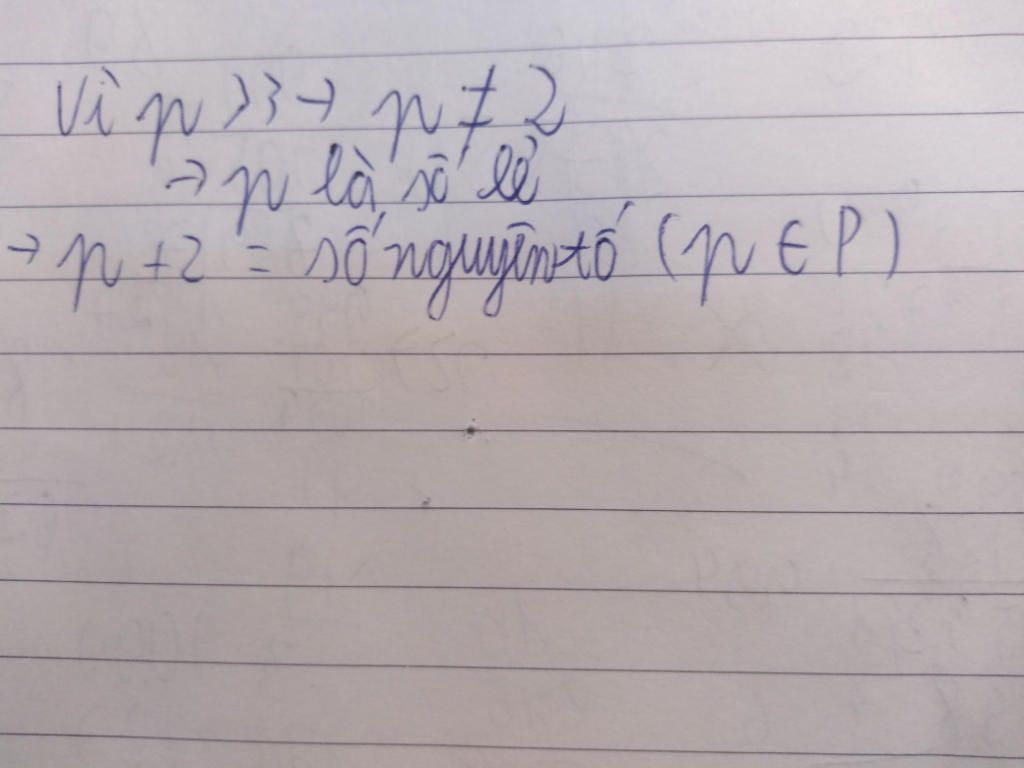 Vì p > 3 → p ≠ 2
→ p là số lẻ
→ p + 2 = số nguyên tố (p ∈ P)